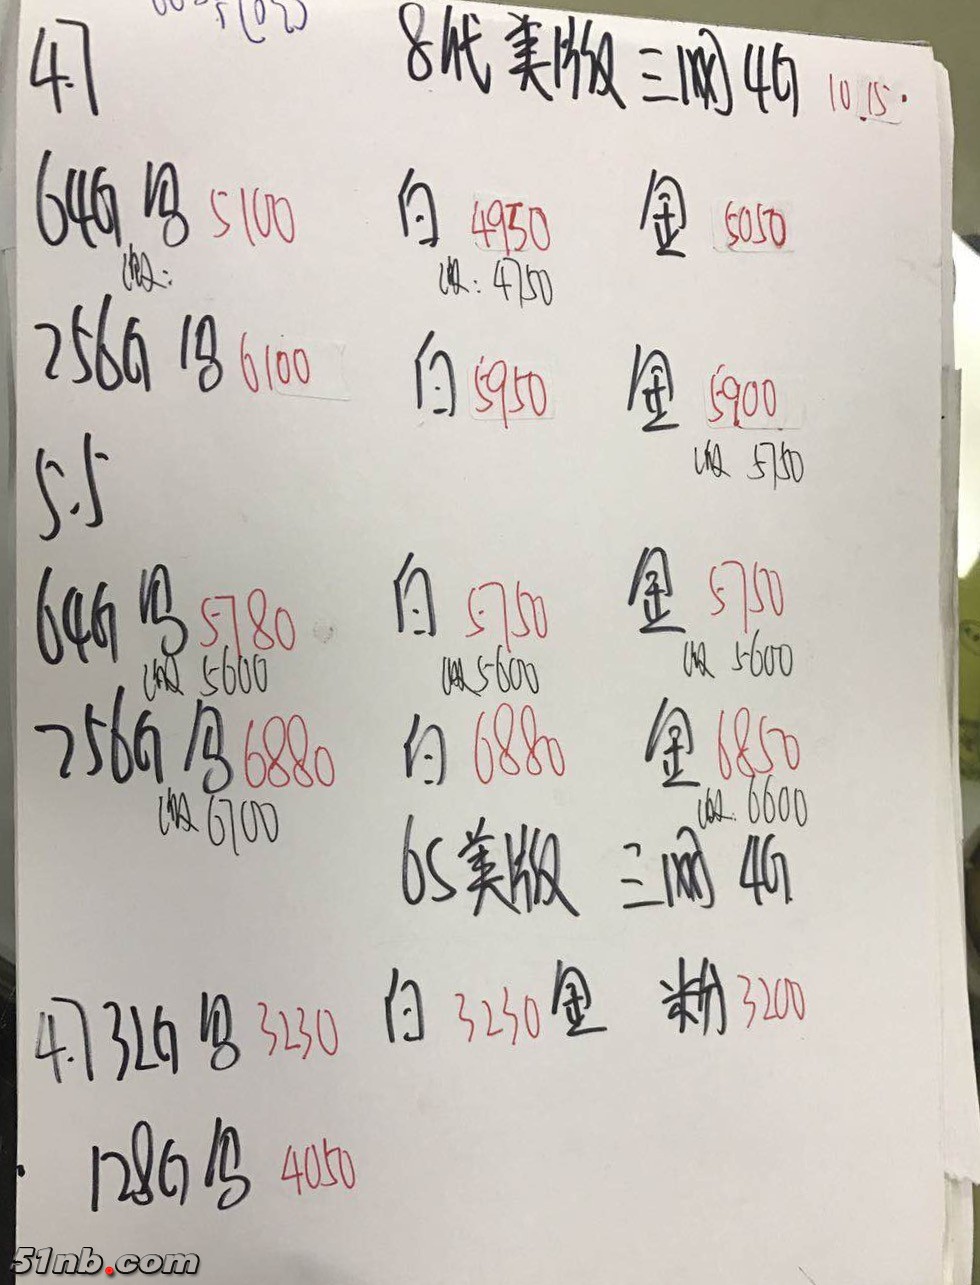 4.7 8代美版三网4G 10.15.
64G 黑 5100 白 4950 金 5050
收: 收: 4750
256G 黑 6100 白 5950 金 5900
收 5750
5.5
64G 黑 5780 白 5750 金 5750
收 5600 收 5600 收 5600
256G 黑 6880 白 6880 金 6850
收 6700 收: 6600
6S美版 三网 4G
4.7 32G 黑 3230 白 3230 金 粉 3200
128G 黑 4050
51nb.com